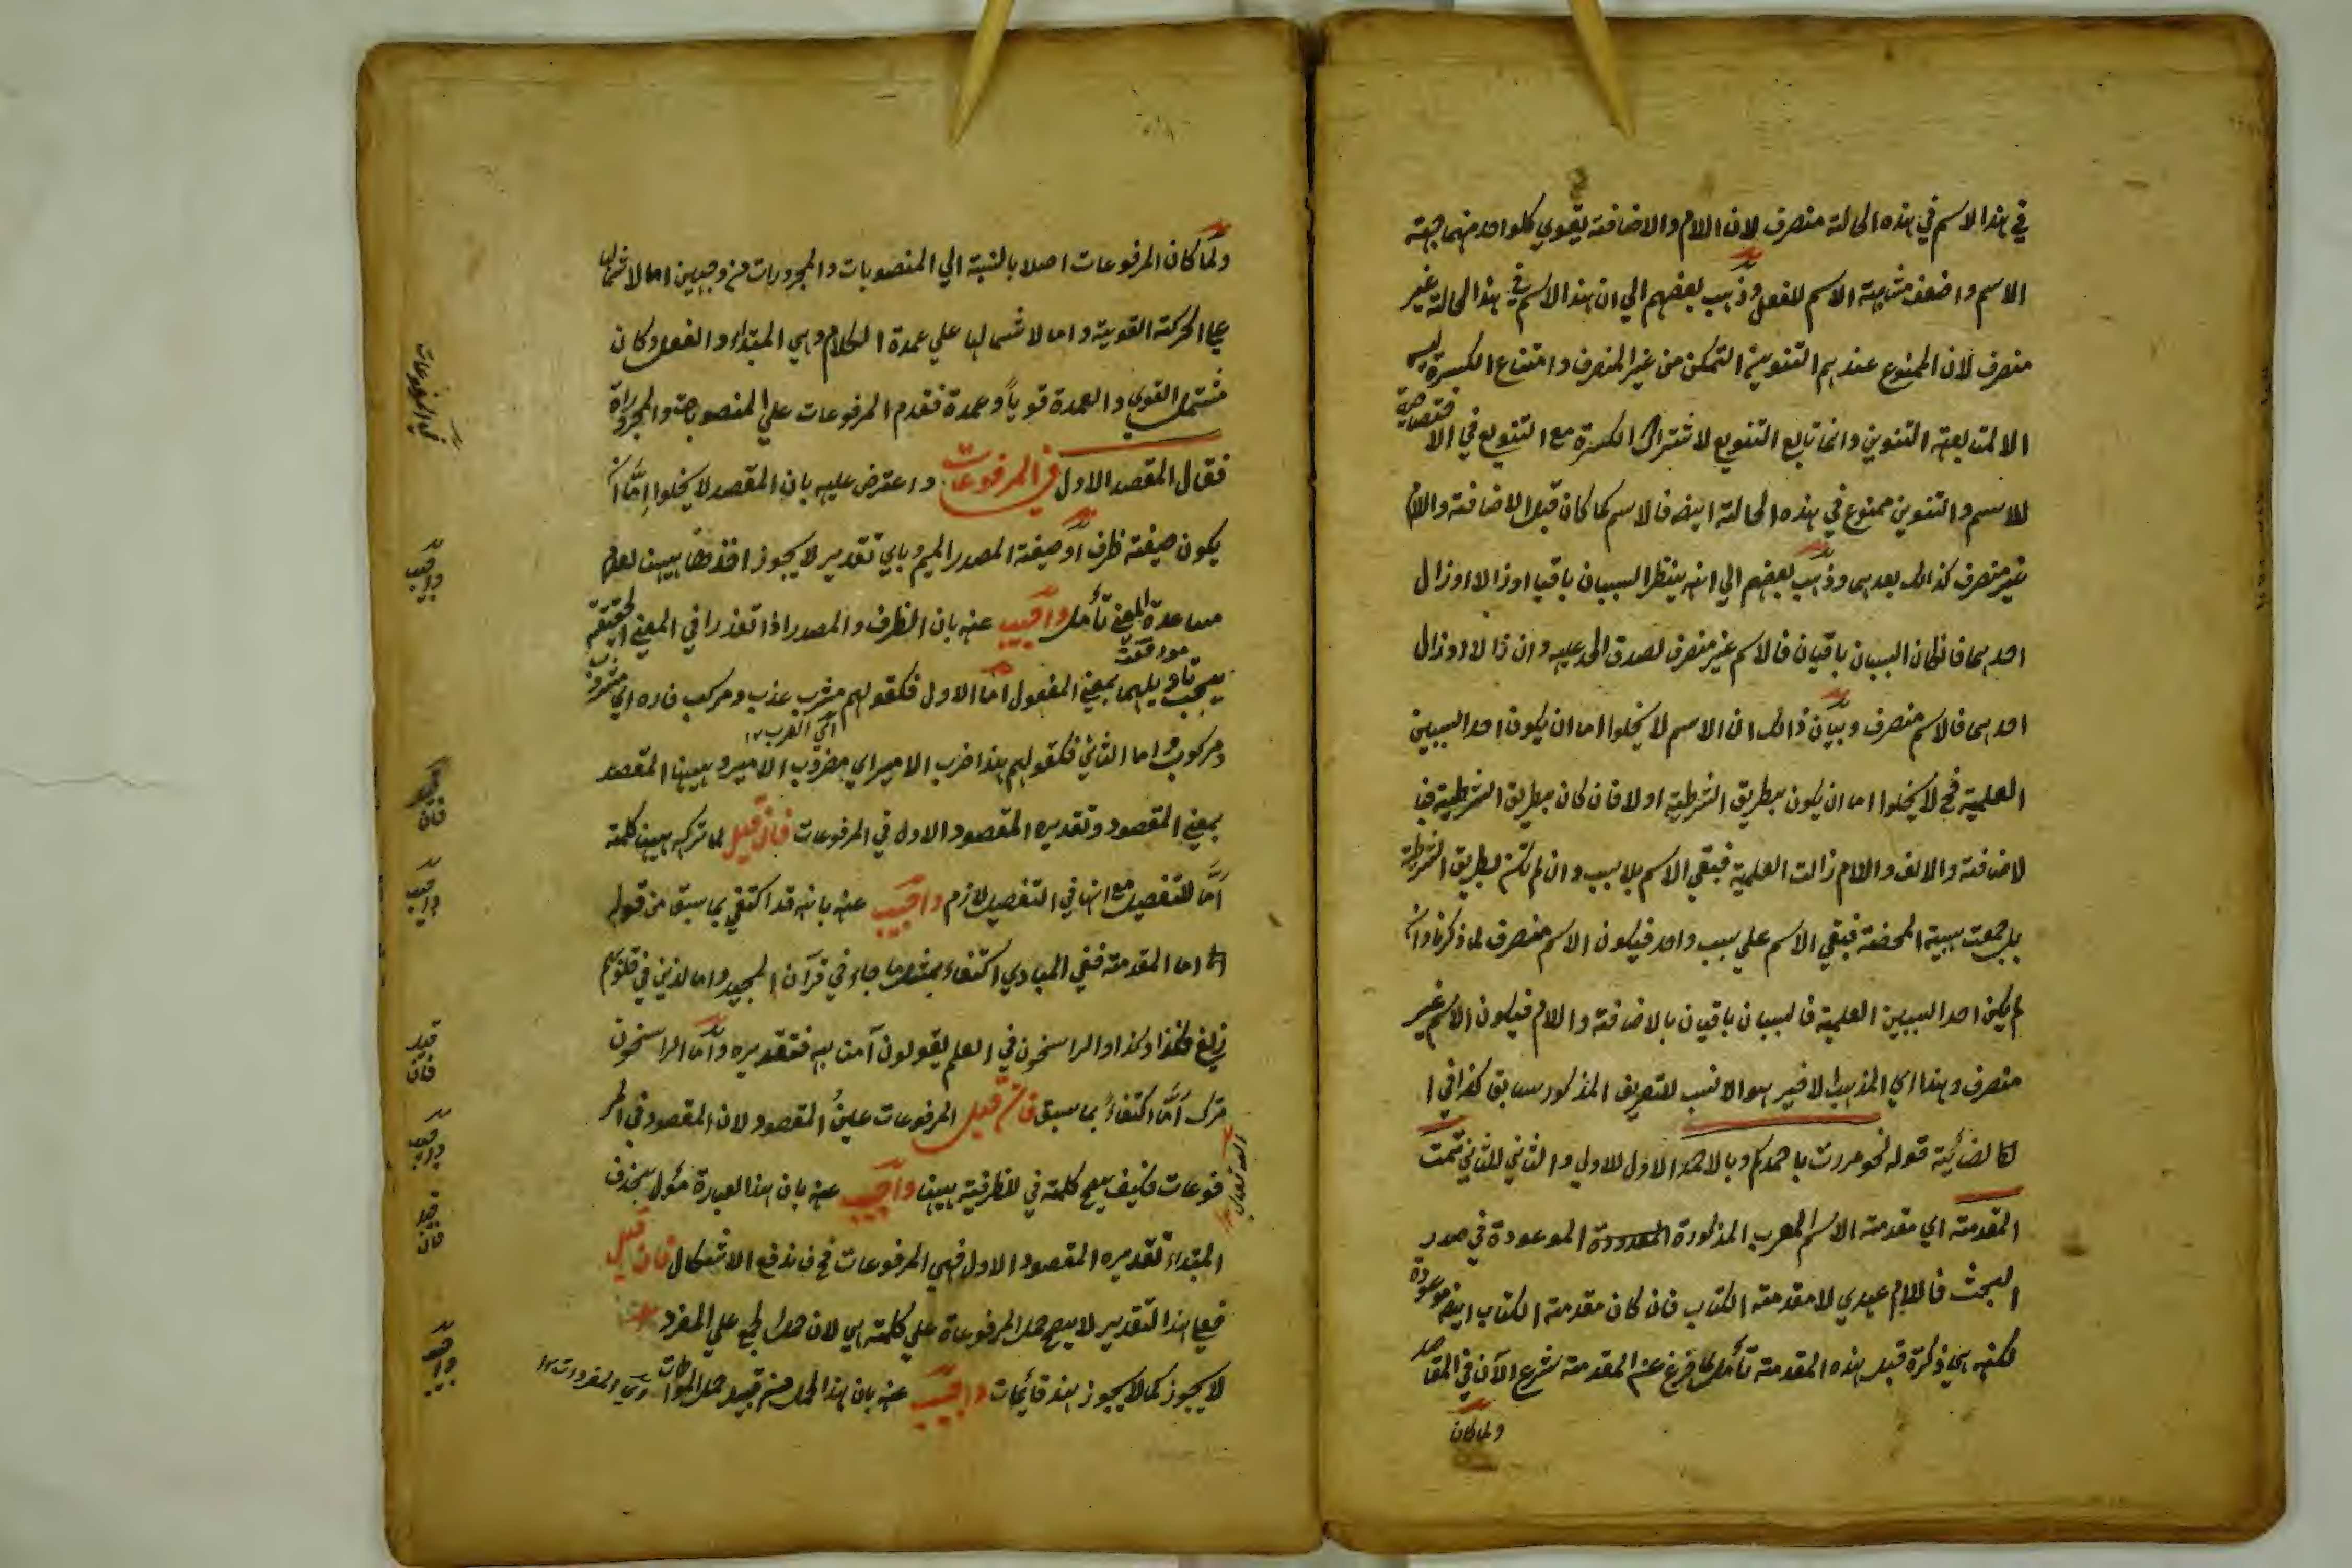 في هذا الاسم في هذه الحالة منصرف لان اللام والاضافة يقوي كلواحد منهما جهة
الاسم واضعف مشابهة الاسم للفعل وذهب بعضهم الي ان هذا الاسم في هذا الحالة غير
منصرف لان الممنوع عندهم التنوين التمكن من غير المنصرف وامتناع الكسرة ليس
الا لمتابعة التنوين وانما تابع التنوين لاشتراك الكسرة مع التنوين في الاختصاصية
للاسم والتنوين ممنوع في هذه الحالة ايضه فالاسم كما كان قبل الاضافة واللام
غير منصرف كذالك بعدهما وذهب بعضهم الي انه ينظر السببان باقيا اوزالا اوزال
احدهما فانكان السببان باقيان فالاسم غير منصرف لصدق الحد عليه وان زالا اوزال
احدهما فالاسم منصرف وبيان ذالك ان الاسم لا يخلوا اما ان يكون احد السببين
العلمية فح لا يخلوا اما ان يكون بطريق الشرطية اولا فان كان بطريق الشرطية فبا
لاضافة والالف واللام زالت العلمية فبقي الاسم بلا سبب وان لم تكن بطريق الشرطية
بل جمعت سببية المحضة فبقي الاسم علي سبب واحد فيكون الاسم منصرف لما ذكرنا وان
لم يكن احد السببين العلمية فالسببان باقيان بالاضافة واللام فيكون الاسم غير
منصرف وهذا اي المذهب الاخير هو الانسب لتعريف المذكور سابق كذا في ا
لضائية قوله نحو مررت باحمدكم وبالاحمد الاول للاولي والثاني للثاني تمت
المقدمة اي مقدمة الاسم المعرب المذكورة الموعودة في صدر
البحث فاللام عهدي لا مقدمة الكتاب فان كان مقدمة الكتاب ايضه موعودة
لكنه ذكرة قبل هذه المقدمة تأمل لما فرغ عن المقدمة شرع الآن في المقاصد
ولما كان
ولما كان المرفوعات اصلا بالنسبة الي المنصوبات والمجرورات من وجهين اما لاشتمالها
علي الحركة القوية واما لاشتمالها علي عمدة الكلام وهي المبتداء والفعل وكان
مشتمل القوي والعمدة قوياً وعمدة فقدم المرفوعات علي المنصوبات والمجروراة
فقال المقصد الاول في المرفوعات واعترض عليه بان المقصد لا يخلوا اِمّا ان
يكون صيغة ظرف او صيغة المصدر الميم وباي تقدير لا يجوز اخذها ههنا لعدم
مساعدة المعني تأمل واجيب عنه بان الظرف والمصدر اذا تعذرا في المعني الحقيقة
يجب تاويلهما بمعني المفعول اما الاول فكقولهم مشرب عذب ومركب فاره اي مشروب
ومركوب واما الثاني فكقولهم هذا ضرب الامير اي مضروب الامير وههنا المقصد
بمعني المقصود وتقديره المقصود الاول في المرفوعات فان قيل لما تركه ههنا كلمة
اَمّا للتفصيل مع انها في التفصيل لازم واجيب عنه بانه قد اكتفي بما سبق من قوله
اما المقدمة ففي المبادي اكتفاء بمثل ما جاء في قرآن المجيد واما الذين في قلوبهم
زيغ فكذا وكذا والراسخون في العلم يقولون آمنا به فتقديره واما الراسخون
ترك اَمّا اكتفاءً بما سبق فان قيل المرفوعات عينُ المقصود لان المقصود في المر
فوعات فكيف يصح كلمة في للظرفية ههنا واجيب عنه بان هذا العبارة مئول بحذف
المبتداء تقديره المقصود الاول فهي المرفوعات فح فاندفع الاشكال فان قيل
فعلي هذا التقدير لا يصح حمل المرفوعاة علي كلمة هي لان حمل الجمع علي المفرد
لا يجوز كما لا يجوز هند قائمات واجيب عنه بان هذا الحمل من قبيل حمل
في المرفوعات
واجيب
فان قيل
واجيب
فان قيل
واجيب
فان قيل
واجيب